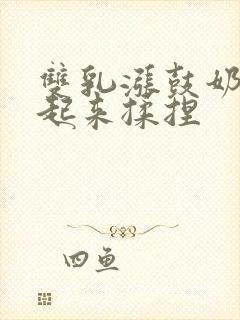 雙乳漲鼓奶
起来揉捏
四鱼